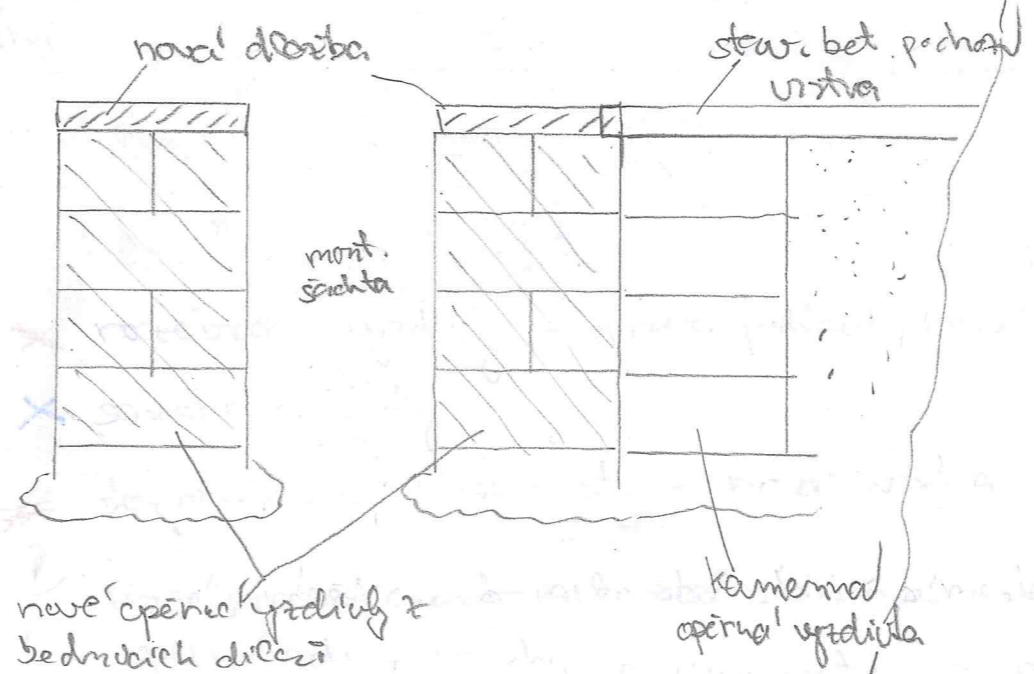 nová dlažba
stav. bet. pochozí
vrstva
mont.
šachta
nové opěrné vyzdívky z
bednících dílců
kamenná
opěrná vyzdívka